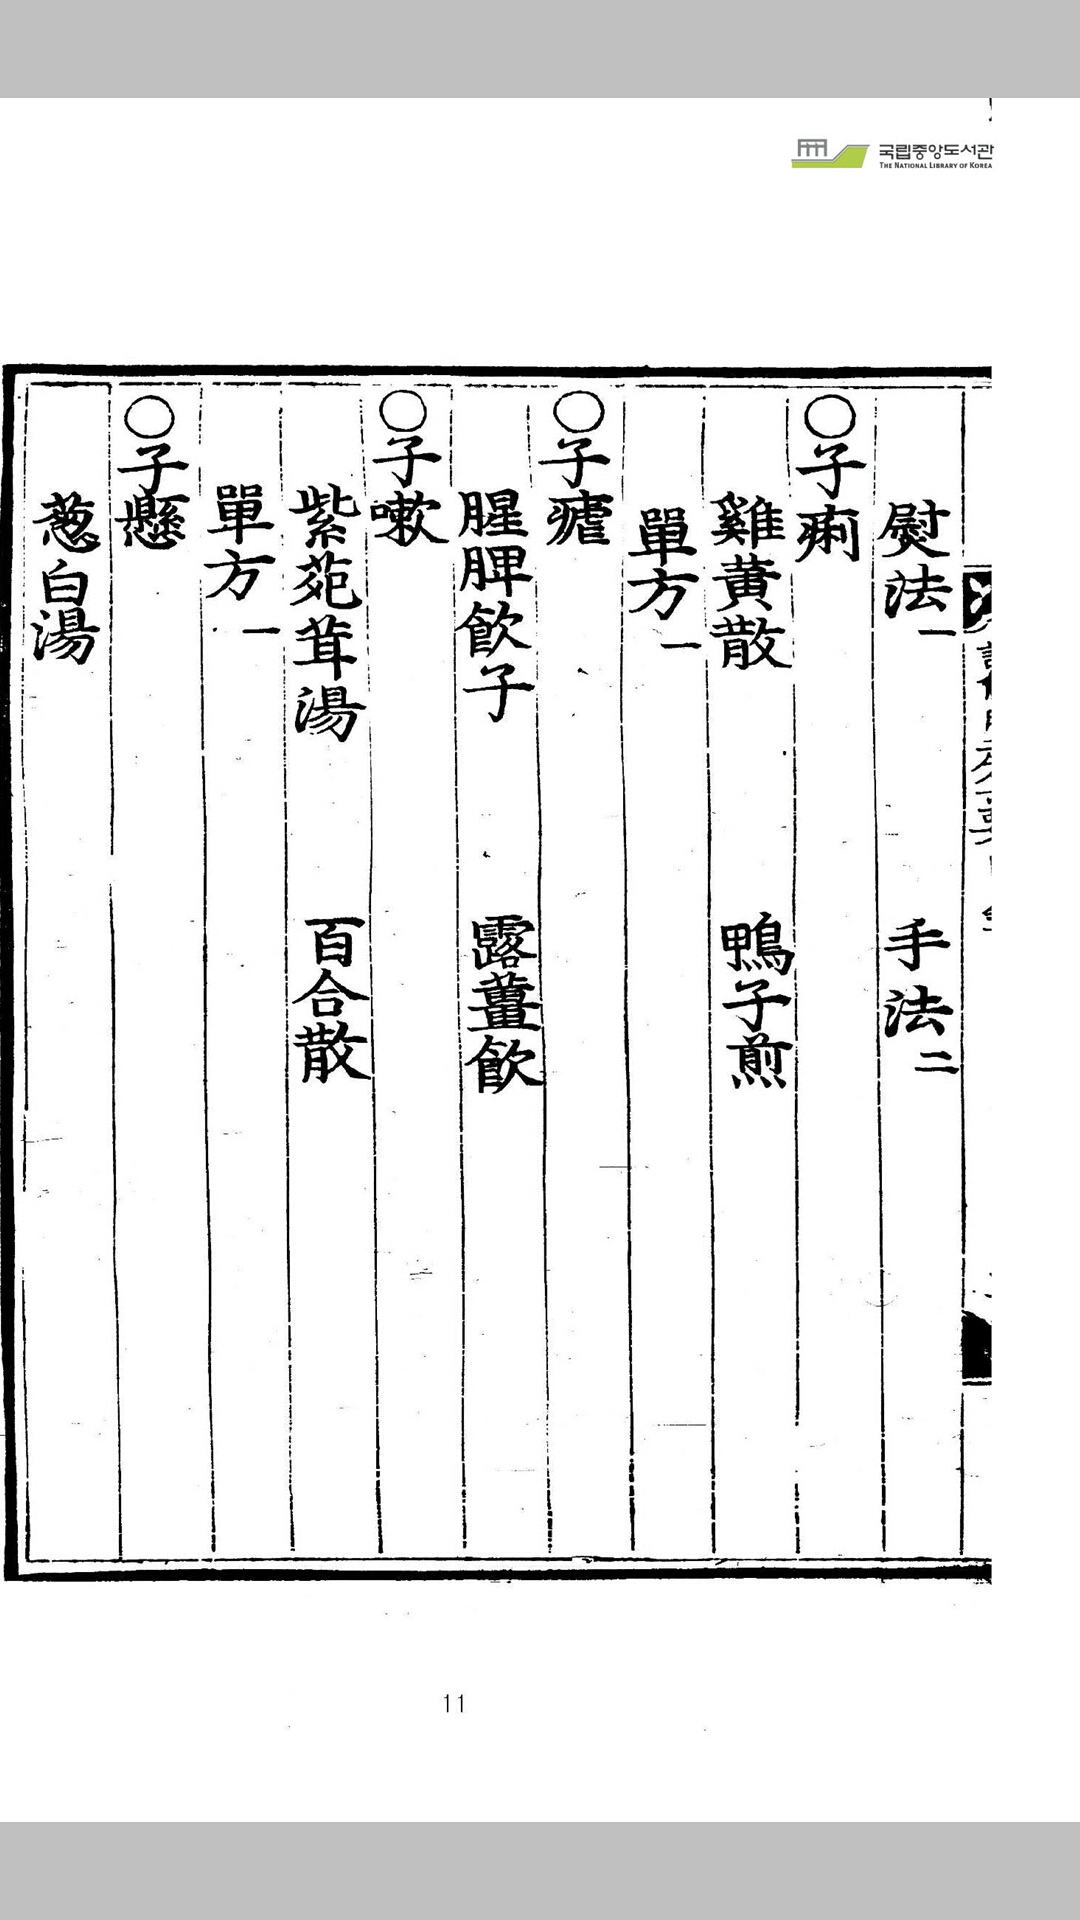 국립중앙도서관
THE NATIONAL LIBRARY OF KOREA
熨法一 手法二
○子痢
雞黃散 鴨子煎
單方一
○子瘧
腥脾飮子 露薑飮
○子嗽
紫菀茸湯 百合散
單方一
○子懸
葱白湯
11